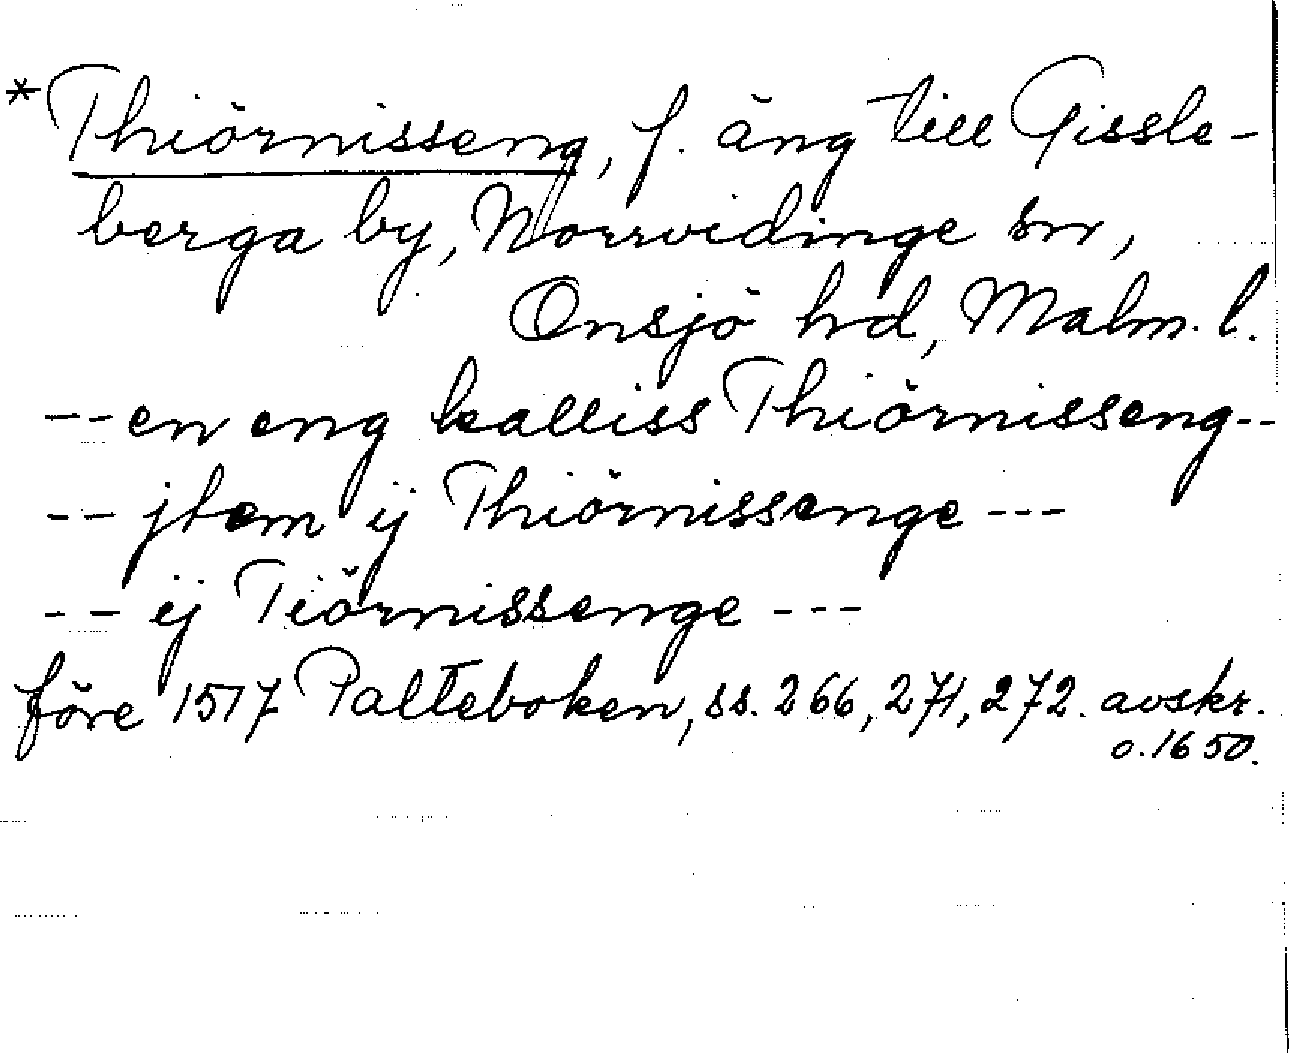 *Thiörnisseng, f. äng till Gissle-
berga by, Norrvidinge sn,
Onsjö hd, Malm. l.
-- en eng kalliss Thiörnisseng --
-- jtem ij Thiörnissenge ---
-- ij Tiörnissenge ---
före 1517 Palteboken, ss. 266, 271, 272. avskr.
o. 1650.